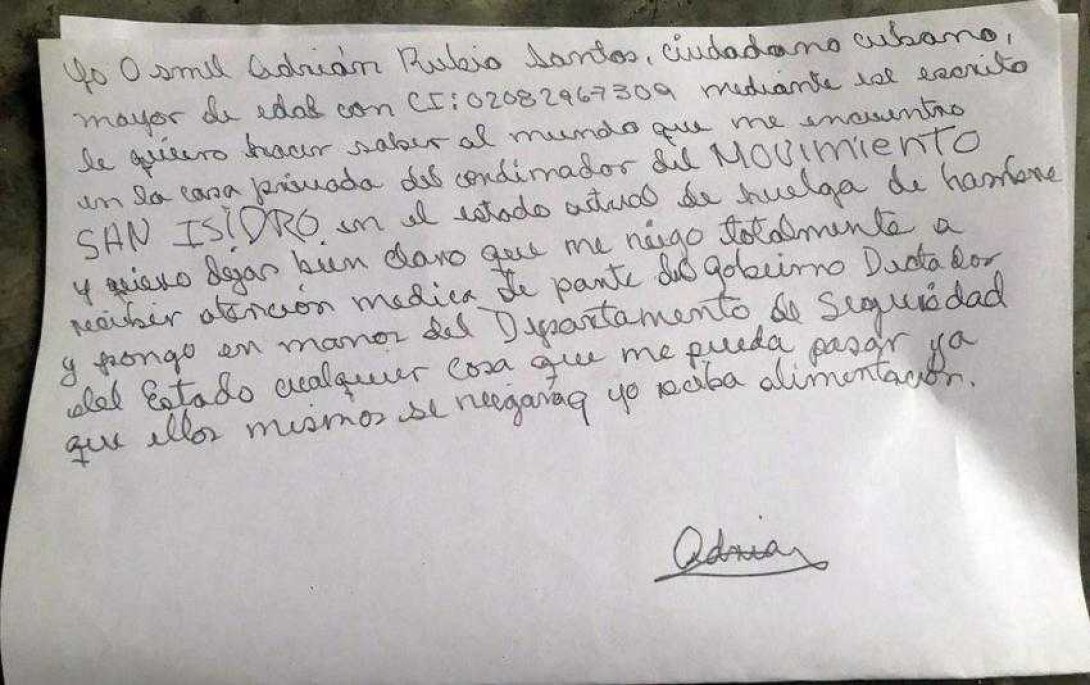 Yo Osmel Adrián Rubio Santos, ciudadano cubano,
mayor de edad con CI: 02082967309 mediante ese escrito
le quiero hacer saber al mundo que me encuentro
en la casa privada del cordinador del MOVIMIENTO
SAN ISIDRO. en el estado actual de huelga de hambre
y quiero dejar bien claro que me niego totalmente a
recibir atención medica de parte del gobierno Dictador
y pongo en manos del Departamento de Seguridad
del Estado cualquier cosa que me pueda pasar ya
que ellos mismos se negaran yo reciba alimentación.
Adrian